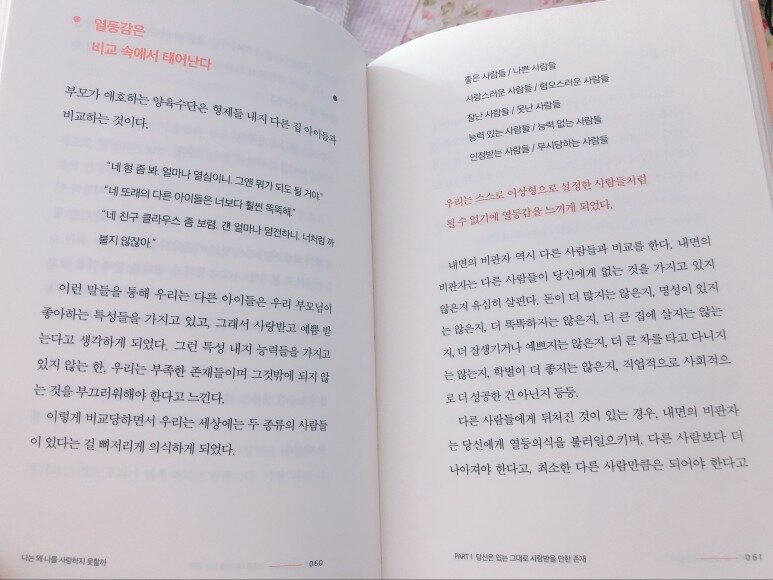 열등감은
비교 속에서 태어난다
부모가 애호하는 양육수단은 형제들 내지 다른 집 아이들과
비교하는 것이다.
“네 형 좀 봐. 얼마나 열심이니. 그앤 뭐가 되도 될 거야.”
“네 또래의 다른 아이들은 너보다 훨씬 똑똑해.”
“네 친구 클라우스 좀 보렴. 걘 얼마나 얌전하니. 너처럼 까
불지 않잖아.”
이런 말들을 통해 우리는 다른 아이들은 우리 부모님이
좋아하는 특성들을 가지고 있고, 그래서 사랑받고 예쁨 받
는다고 생각하게 되었다. 그런 특성 내지 능력들을 가지고
있지 않는 한, 우리는 부족한 존재들이며 그것밖에 되지 않
는 것을 부끄러워해야 한다고 느낀다.
이렇게 비교당하면서 우리는 세상에는 두 종류의 사람들
이 있다는 걸 뼈저리게 의식하게 되었다.
나는 왜 나를 사랑하지 못할까
060
좋은 사람들 / 나쁜 사람들
사랑스러운 사람들 / 혐오스러운 사람들
잘난 사람들 / 못난 사람들
능력 있는 사람들 / 능력 없는 사람들
인정받는 사람들 / 무시당하는 사람들
우리는 스스로 이상형으로 설정한 사람들처럼
될 수 없기에 열등감을 느끼게 되었다.
내면의 비판자 역시 다른 사람들과 비교를 한다. 내면의
비판자는 다른 사람들이 당신에게 없는 것을 가지고 있지
않은지 유심히 살핀다. 돈이 더 많지는 않은지, 명성이 있지
는 않은지, 더 똑똑하지는 않은지, 더 큰 집에 살지는 않는
지, 더 잘생기거나 예쁘지는 않은지, 더 큰 차를 타고 다니지
는 않는지, 학벌이 더 좋지는 않은지, 직업적으로 사회적으
로 더 성공한 건 아닌지 등등.
다른 사람들에게 뒤처진 것이 있는 경우, 내면의 비판자
는 당신에게 열등의식을 불러일으키며, 다른 사람보다 더
나아져야 한다고, 최소한 다른 사람만큼은 되어야 한다고
PART 1 당신은 있는 그대로 사랑받을 만한 존재
061